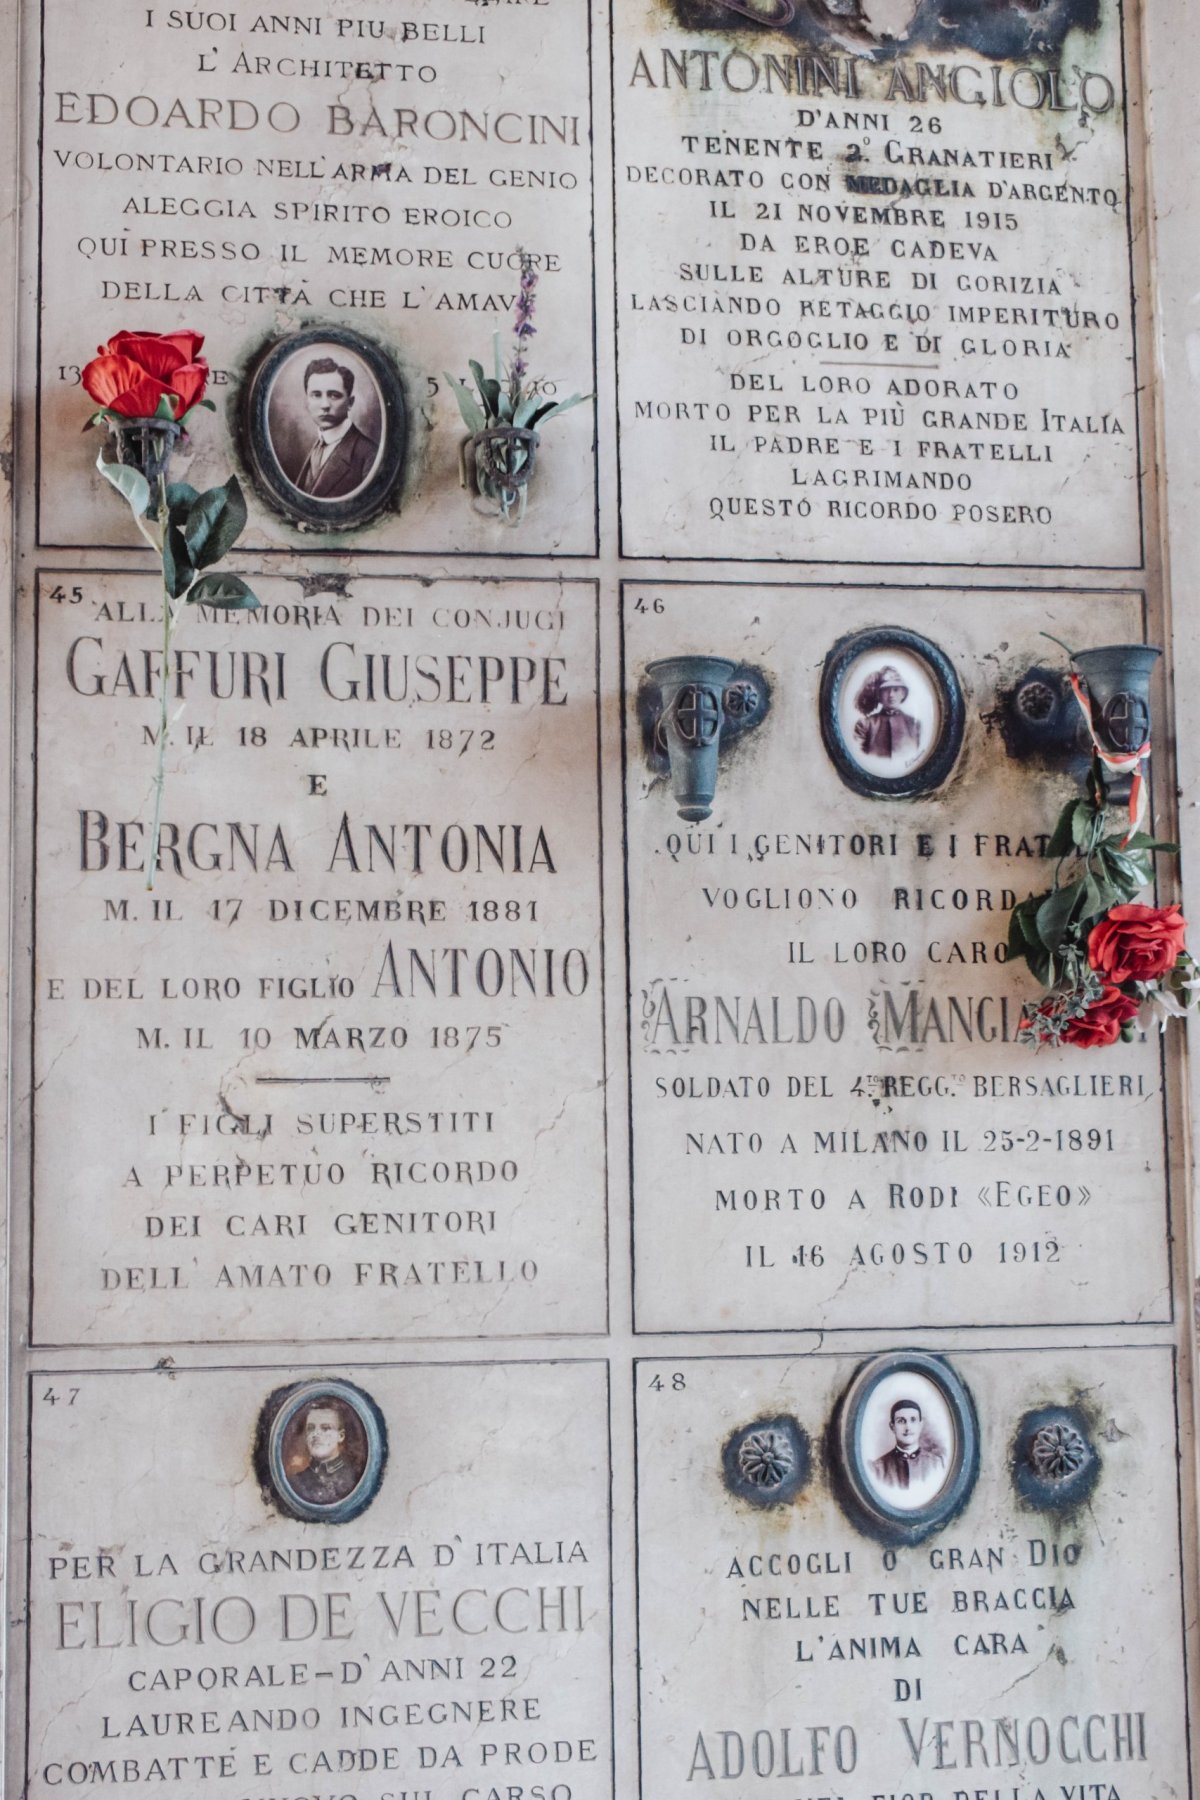 I SUOI ANNI PIU BELLI
L'ARCHITETTO
EDOARDO BARONCINI
VOLONTARIO NELL'ARMA DEL GENIO
ALEGGIA SPIRITO EROICO
QUI PRESSO IL MEMORE CUORE
DELLA CITTÀ CHE L'AMAVA
ANTONINI ANGIOLO
D'ANNI 26
TENENTE 2º GRANATIERI
DECORATO CON MEDAGLIA D'ARGENTO
IL 21 NOVEMBRE 1915
DA EROE CADEVA
SULLE ALTURE DI GORIZIA
LASCIANDO RETAGGIO IMPERITURO
DI ORGOGLIO E DI GLORIA
DEL LORO ADORATO
MORTO PER LA PIÙ GRANDE ITALIA
IL PADRE E I FRATELLI
LAGRIMANDO
QUESTO RICORDO POSERO
45
ALLA MEMORIA DEI CONJUGI
GAFFURI GIUSEPPE
M. IL 18 APRILE 1872
E
BERGNA ANTONIA
M. IL 17 DICEMBRE 1881
E DEL LORO FIGLIO ANTONIO
M. IL 10 MARZO 1875
I FIGLI SUPERSTITI
A PERPETUO RICORDO
DEI CARI GENITORI
DELL'AMATO FRATELLO
46
QUI I GENITORI E I
VOGLIONO
IL LORO CARO
ARNALDO
SOLDATO DEL 4.TO REGG.TO BERSAGLIERI
NATO A MILANO IL 25-2-1891
MORTO A RODI «EGEO»
IL 16 AGOSTO 1912
47
PER LA GRANDEZZA D'ITALIA
ELIGIO DE VECCHI
CAPORALE - D'ANNI 22
LAUREANDO INGEGNERE
COMBATTÉ E CADDE DA PRODE
SUL CARSO
48
ACCOGLI O GRAN DIO
NELLE TUE BRACCIA
L'ANIMA CARA
DI
ADOLFO VERNOCCHI
NEL FIOR DELLA VITA